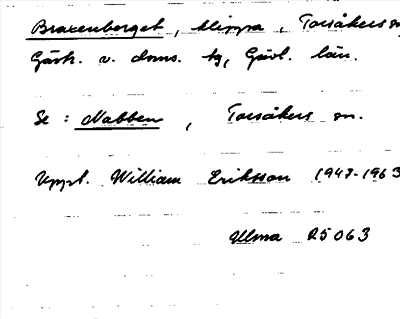 Braxenberget, klippa, Torsåkers sn,
Gästr. v. doms. tg, Gävl. län.
Se: Nabben, Torsåkers sn.
Uppt. William Eriksson 1947-1963
Ulma 25063